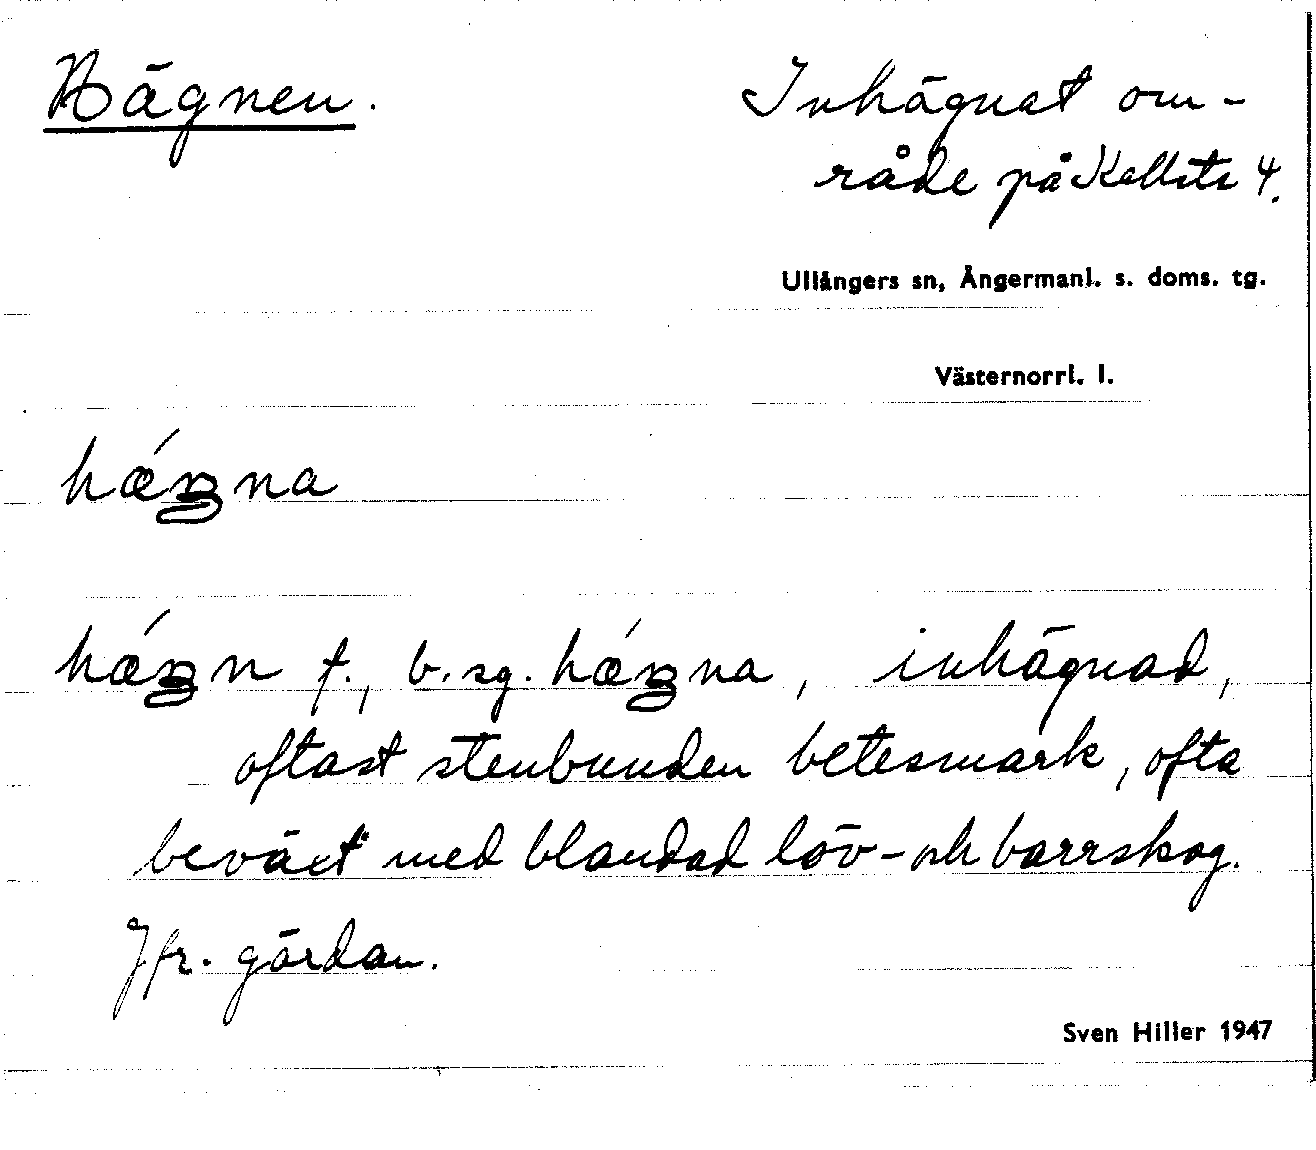 Hägnen.
Inhägnat om-
råde på Kallsta 4.
Ullångers sn, Ångermanl. s. doms. tg.
Västernorrl. l.
hǽŋna
hǽŋn f., b. sg. hǽŋna, inhägnad,
oftast stenbunden betesmark, ofta
beväxt med blandad löv- och barrskog.
Jfr. gärdan.
Sven Hiller 1947